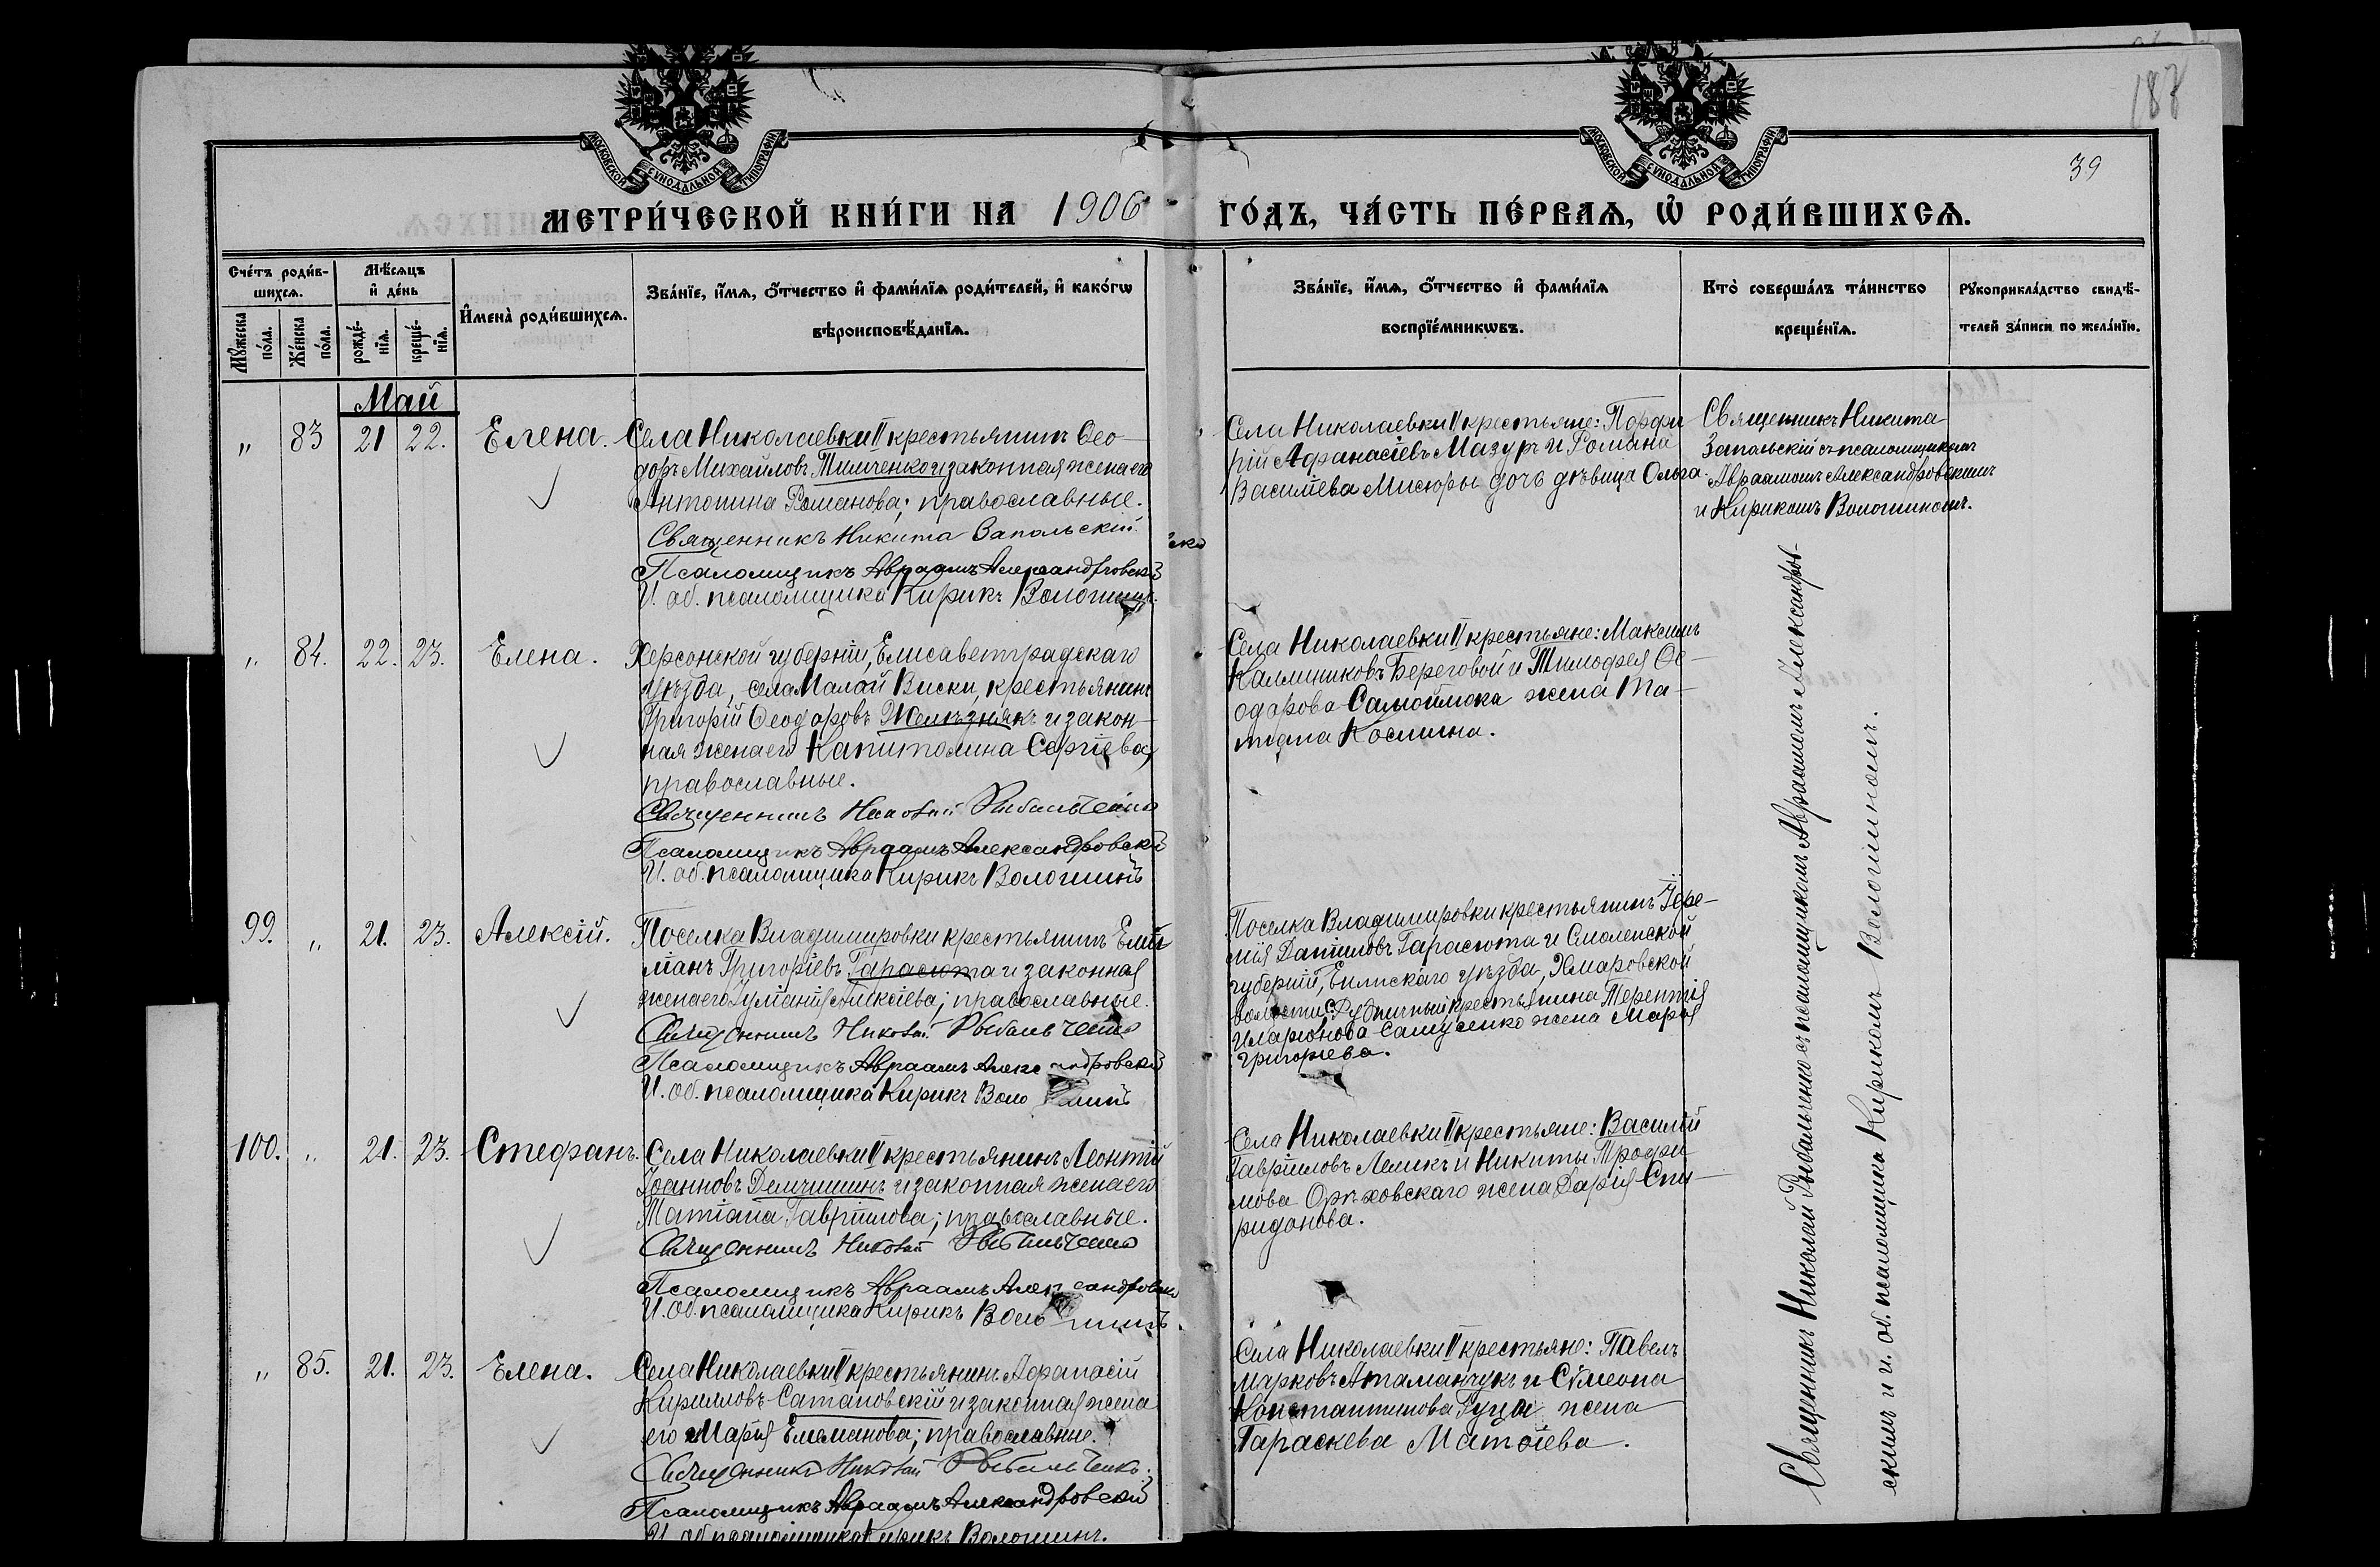 187
39
МОСКОВСКОЙ СѴНОДАЛЬНОЙ ТИПОГРАФІИ
МОСКОВСКОЙ СѴНОДАЛЬНОЙ ТИПОГРАФІИ
МЕТРИ́ЧЕСКОЙ КНИ́ГИ НА 1906 ГО́ДЪ, ЧА́СТЬ ПЕ́РВАѦ, Ѡ҆ РОДИ́ВШИХСѦ.
Сче́тъ роди́в-
шихсѧ.
Мꙋ́жеска
по́ла.
Же́нска
по́ла.
Мѣ́сѧцъ
и҆ де́нь
рожде́-
нїѧ.
креще́-
нїѧ.
И҆мена̀ роди́вшихсѧ.
Зва́нїе, и҆́мѧ, ѻ҆́тчество и҆ фами́лїѧ роди́телей, и҆ како́гѡ
вѣроисповѣ́данїѧ.
Зва́нїе, и҆́мѧ, ѻ҆́тчество и҆ фами́лїѧ
воспрїе́мникѡвъ.
Кто̀ соверша́лъ та́инство
креще́нїѧ.
Рꙋкоприкла́дство свидѣ́-
телей за́писи по жела́нїю.
Май
" 83 21 22. Елена.
Села Николаевки II крестьянинъ Ѳео-
доръ Михайловъ Тимченко и законная жена его
Антонина Романова; православные.
Священникъ Никита Запольскій
Псаломщикъ Авраамъ Александровскій
И. об. псаломщика Кирикъ Волошинъ.
Села Николаевки II крестьяне: Порфи
рій Аѳанасіевъ Мазуръ и Романа
Василіева Мисюры дочь дѣвица Ольга.
Священникъ Никита
Запольскій съ псаломщикомъ
Авраамомъ Александровскимъ
и Кирикомъ Волошиномъ.
" 84. 22. 23. Елена.
Херсонской губерніи, Елисаветградскаго
уѣзда, села Малой Виски, крестьянинъ
Григорій Ѳеодоровъ Желѣзнякъ и закон-
ная жена его Капитолина Сергіева,
православные.
Священникъ Николай Рыбальченко
Псаломщикъ Авраамъ Александровскій
И. об. псаломщика Кирикъ Волошинъ
Села Николаевки II крестьяне: Максимъ
Калинниковъ Береговой и Тимоѳея Ѳе-
одорова Самойлюка жена Та-
тіана Космина.
99. " 21. 23. Алексій.
Поселка Владимировки крестьянинъ
Григоріевъ Тарасюта и законная
жена его Іуліанія Алексіева; православные.
Священникъ Николай Рыбальченко
Псаломщикъ Авраамъ Александровскій
И. об. псаломщика Кирикъ Волошинъ
Поселка Владимировки крестьянинъ Іере-
мія Даніиловъ Тарасюта и Смоленской
губерніи, уѣзда, Хмаровской
волости крестьянина Терентія
Иларіонова Самусенко жена Марія
Григорьева.
100. " 21. 23. Стефанъ.
Села Николаевки II крестьянинъ Леонтій
Іоанновъ Демчишинъ и законная жена его
Татіана Гавріилова; православные.
Священникъ Николай Рыбальченко
Псаломщикъ Авраамъ Александровскій
И. об. псаломщика Кирикъ Волошинъ.
Села Николаевки II крестьяне: Василій
Гавріиловъ Лешкъ и Никиты Трофи-
мова Орѣховскаго жена Дарія Спи-
ридонова.
" 85. 21. 23. Елена.
Села Николаевки II крестьянинъ Аѳанасій
Кирилловъ Сатановскій и законная жена
его Марія Емельянова; православные.
Священникъ Николай Рыбальченко.
Псаломщикъ Авраамъ Александровскій
И. об. псаломщика Кирикъ Волошинъ.
Села Николаевки II крестьяне: Павелъ
Марковъ Атаманчукъ и Сѵмеона
Константинова Гуцы жена
Параскева Матѳіева.
Священникъ Николай Рыбальченко съ псаломщикомъ Авраамомъ Александров-
скимъ и и. об. псаломщика Кирикомъ Волошиномъ.